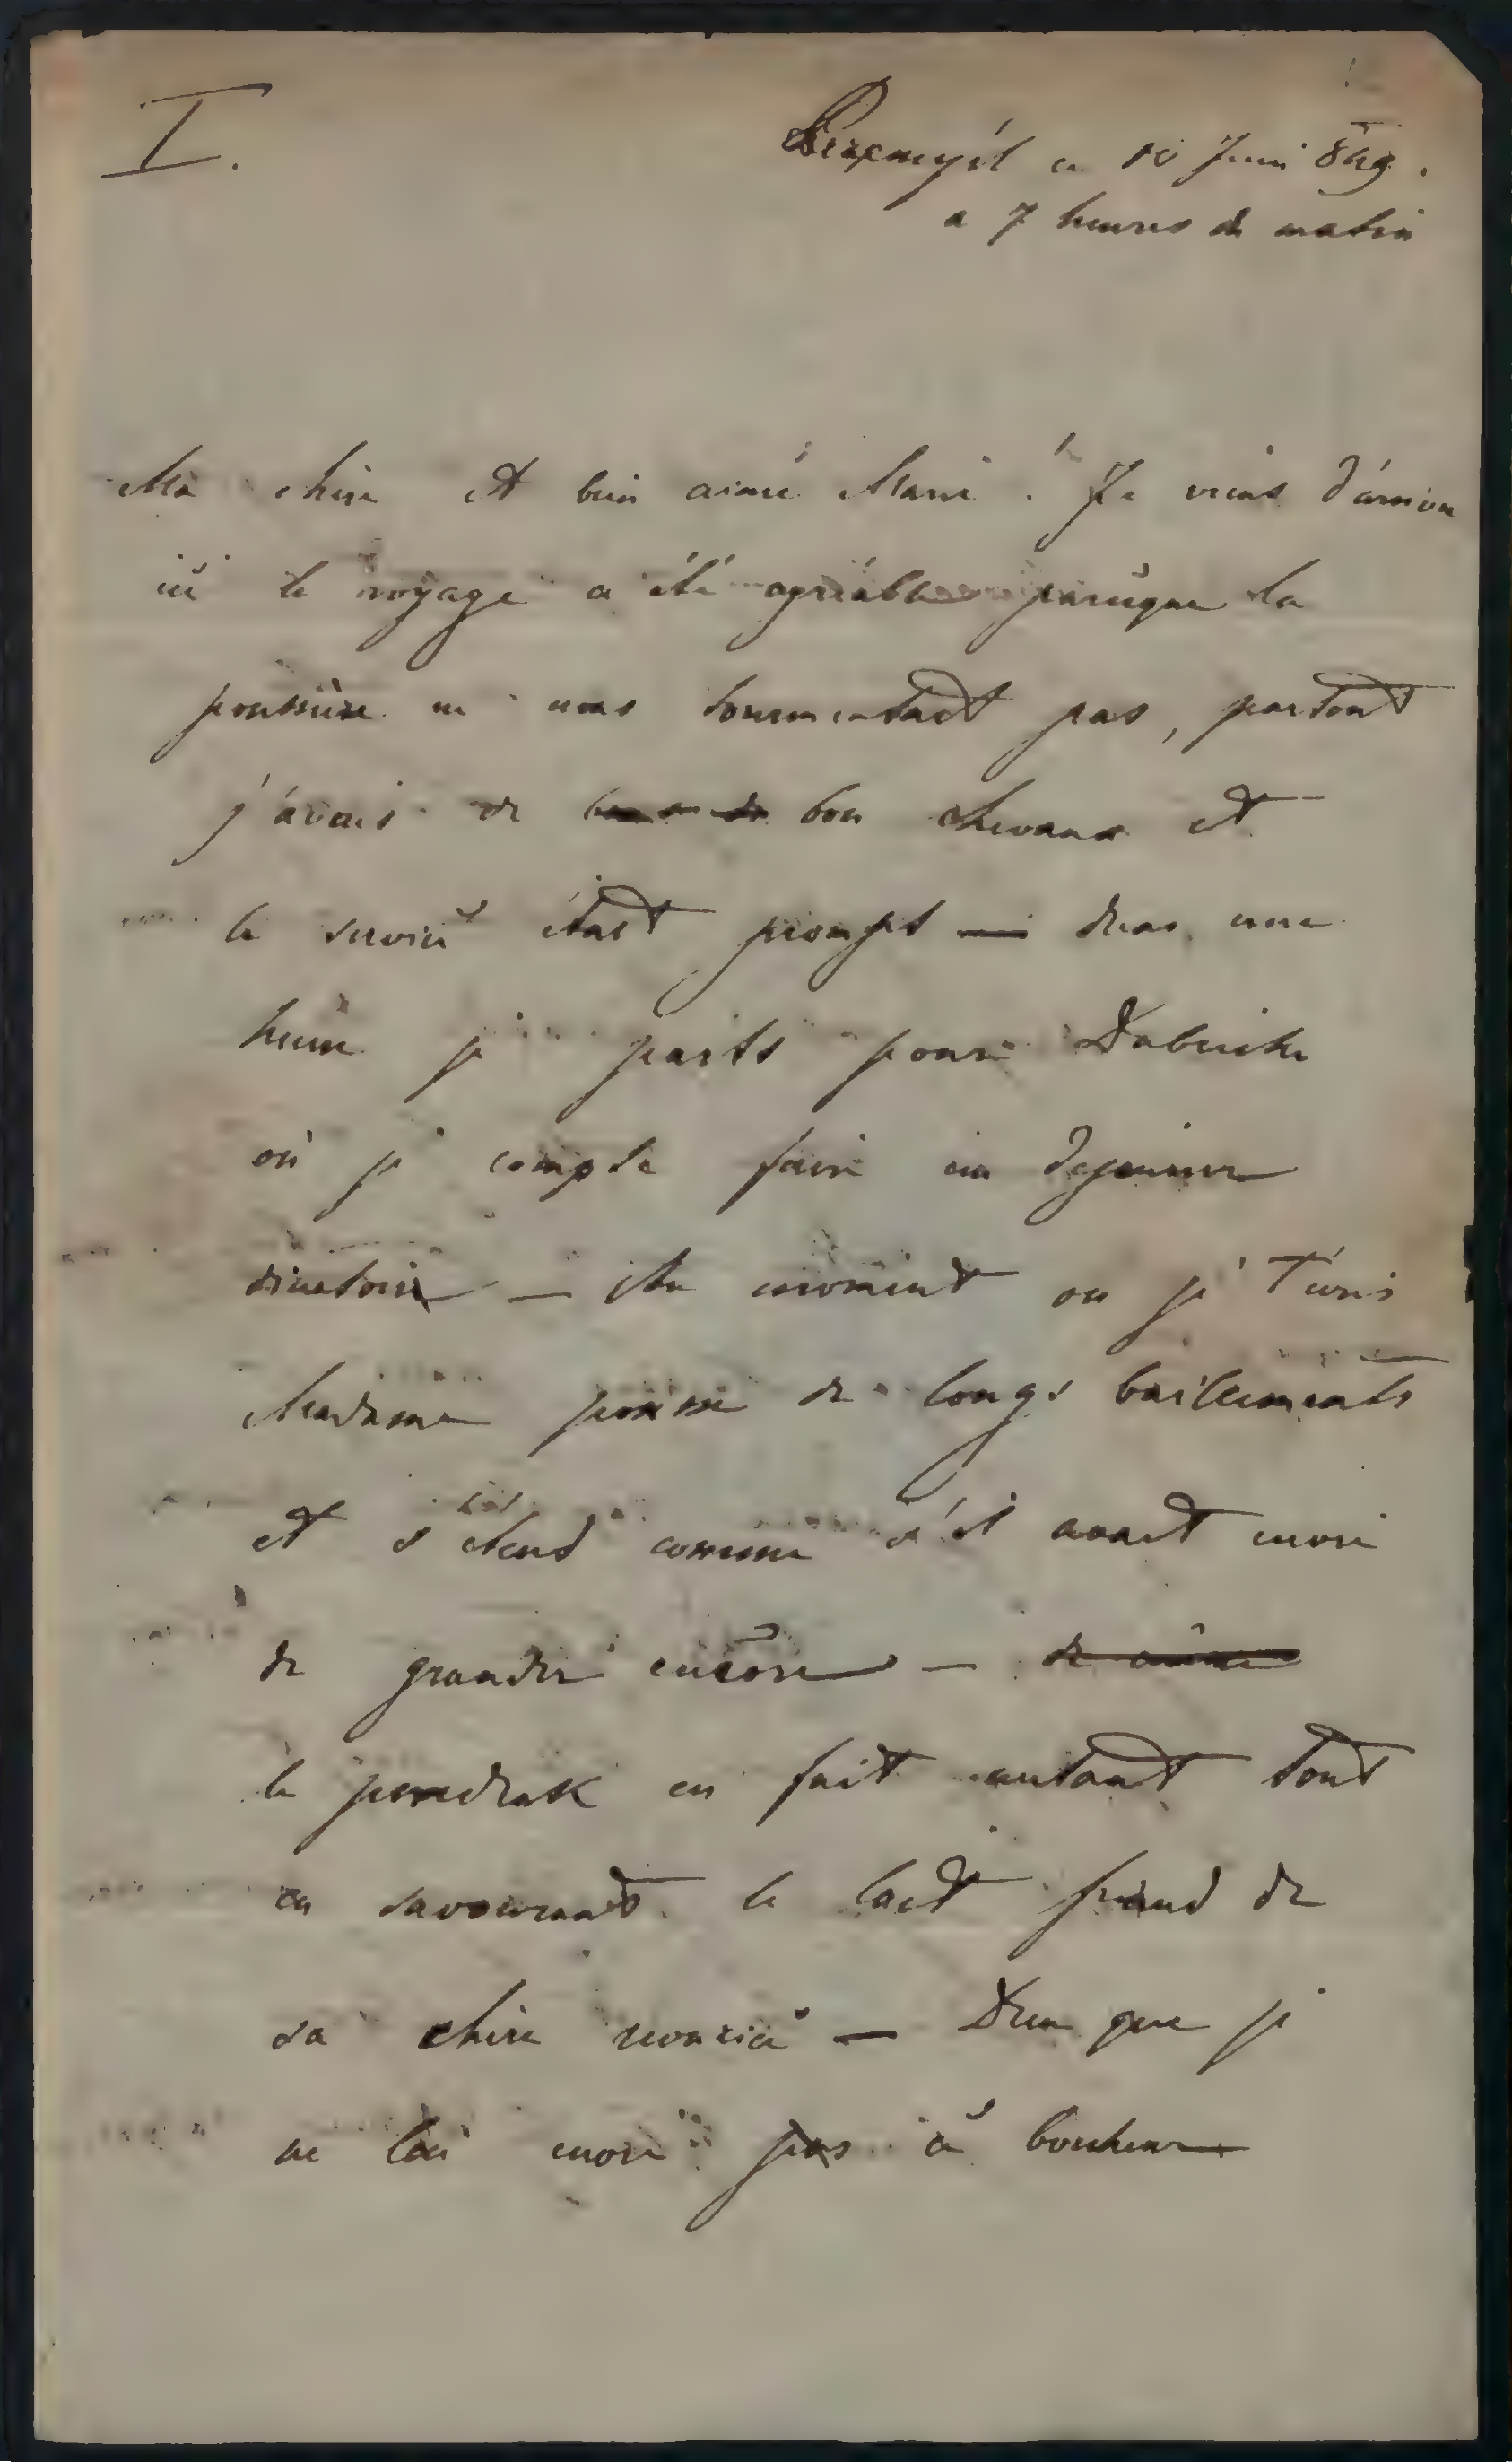 I.
Przemyśl ce 10 Juin 849.
a 7 heures du matin
Ma chere et bien aimé Marie ! Je viens d'arriver
ici le voyage a été agréable puisque la
poussière ne nous tourmentait pas, partout
j'avais de bon chevaux et
le service était prompt — dans une
heure je parts pour Dubiecko
où je compte faire un dejeuner
dinatoire — Au moment ou je t'écris
Madame pousse de longs baillements
et s'étend comme s'il avait envie
de grandir encore —
le pendrak en fait autant tout
en savourant le lait friand de
sa chère nourice — Dieu que je
ne lui envie pas ce bonheur